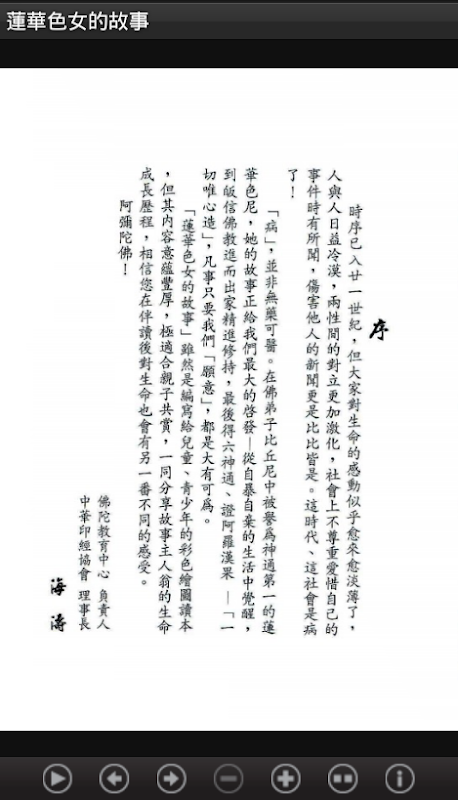 蓮華色女的故事
序
時序已入廿一世紀，但大家對生命的感動似乎愈來愈淡薄了，
人與人日益冷漠，兩性間的對立更加激化，社會上不尊重愛惜自己的
事件時有所聞，傷害他人的新聞更是比比皆是。這時代、這社會是病
了！
「病」，並非無藥可醫。在佛弟子比丘尼中被譽為神通第一的蓮
華色尼，她的故事正給我們最大的啓發—從自暴自棄的生活中覺醒，
到皈信佛教進而出家精進修持，最後得六神通、證阿羅漢果—「一
切唯心造」，凡事只要我們「願意」，都是大有可為。
「蓮華色女的故事」雖然是編寫給兒童、青少年的彩色繪圖讀本
，但其內容意蘊豐厚，極適合親子共賞，一同分享故事主人翁的生命
成長歷程，相信您在伴讀後對生命也會有另一番不同的感受。
阿彌陀佛！
佛陀教育中心 負責人
中華印經協會 理事長
海濤